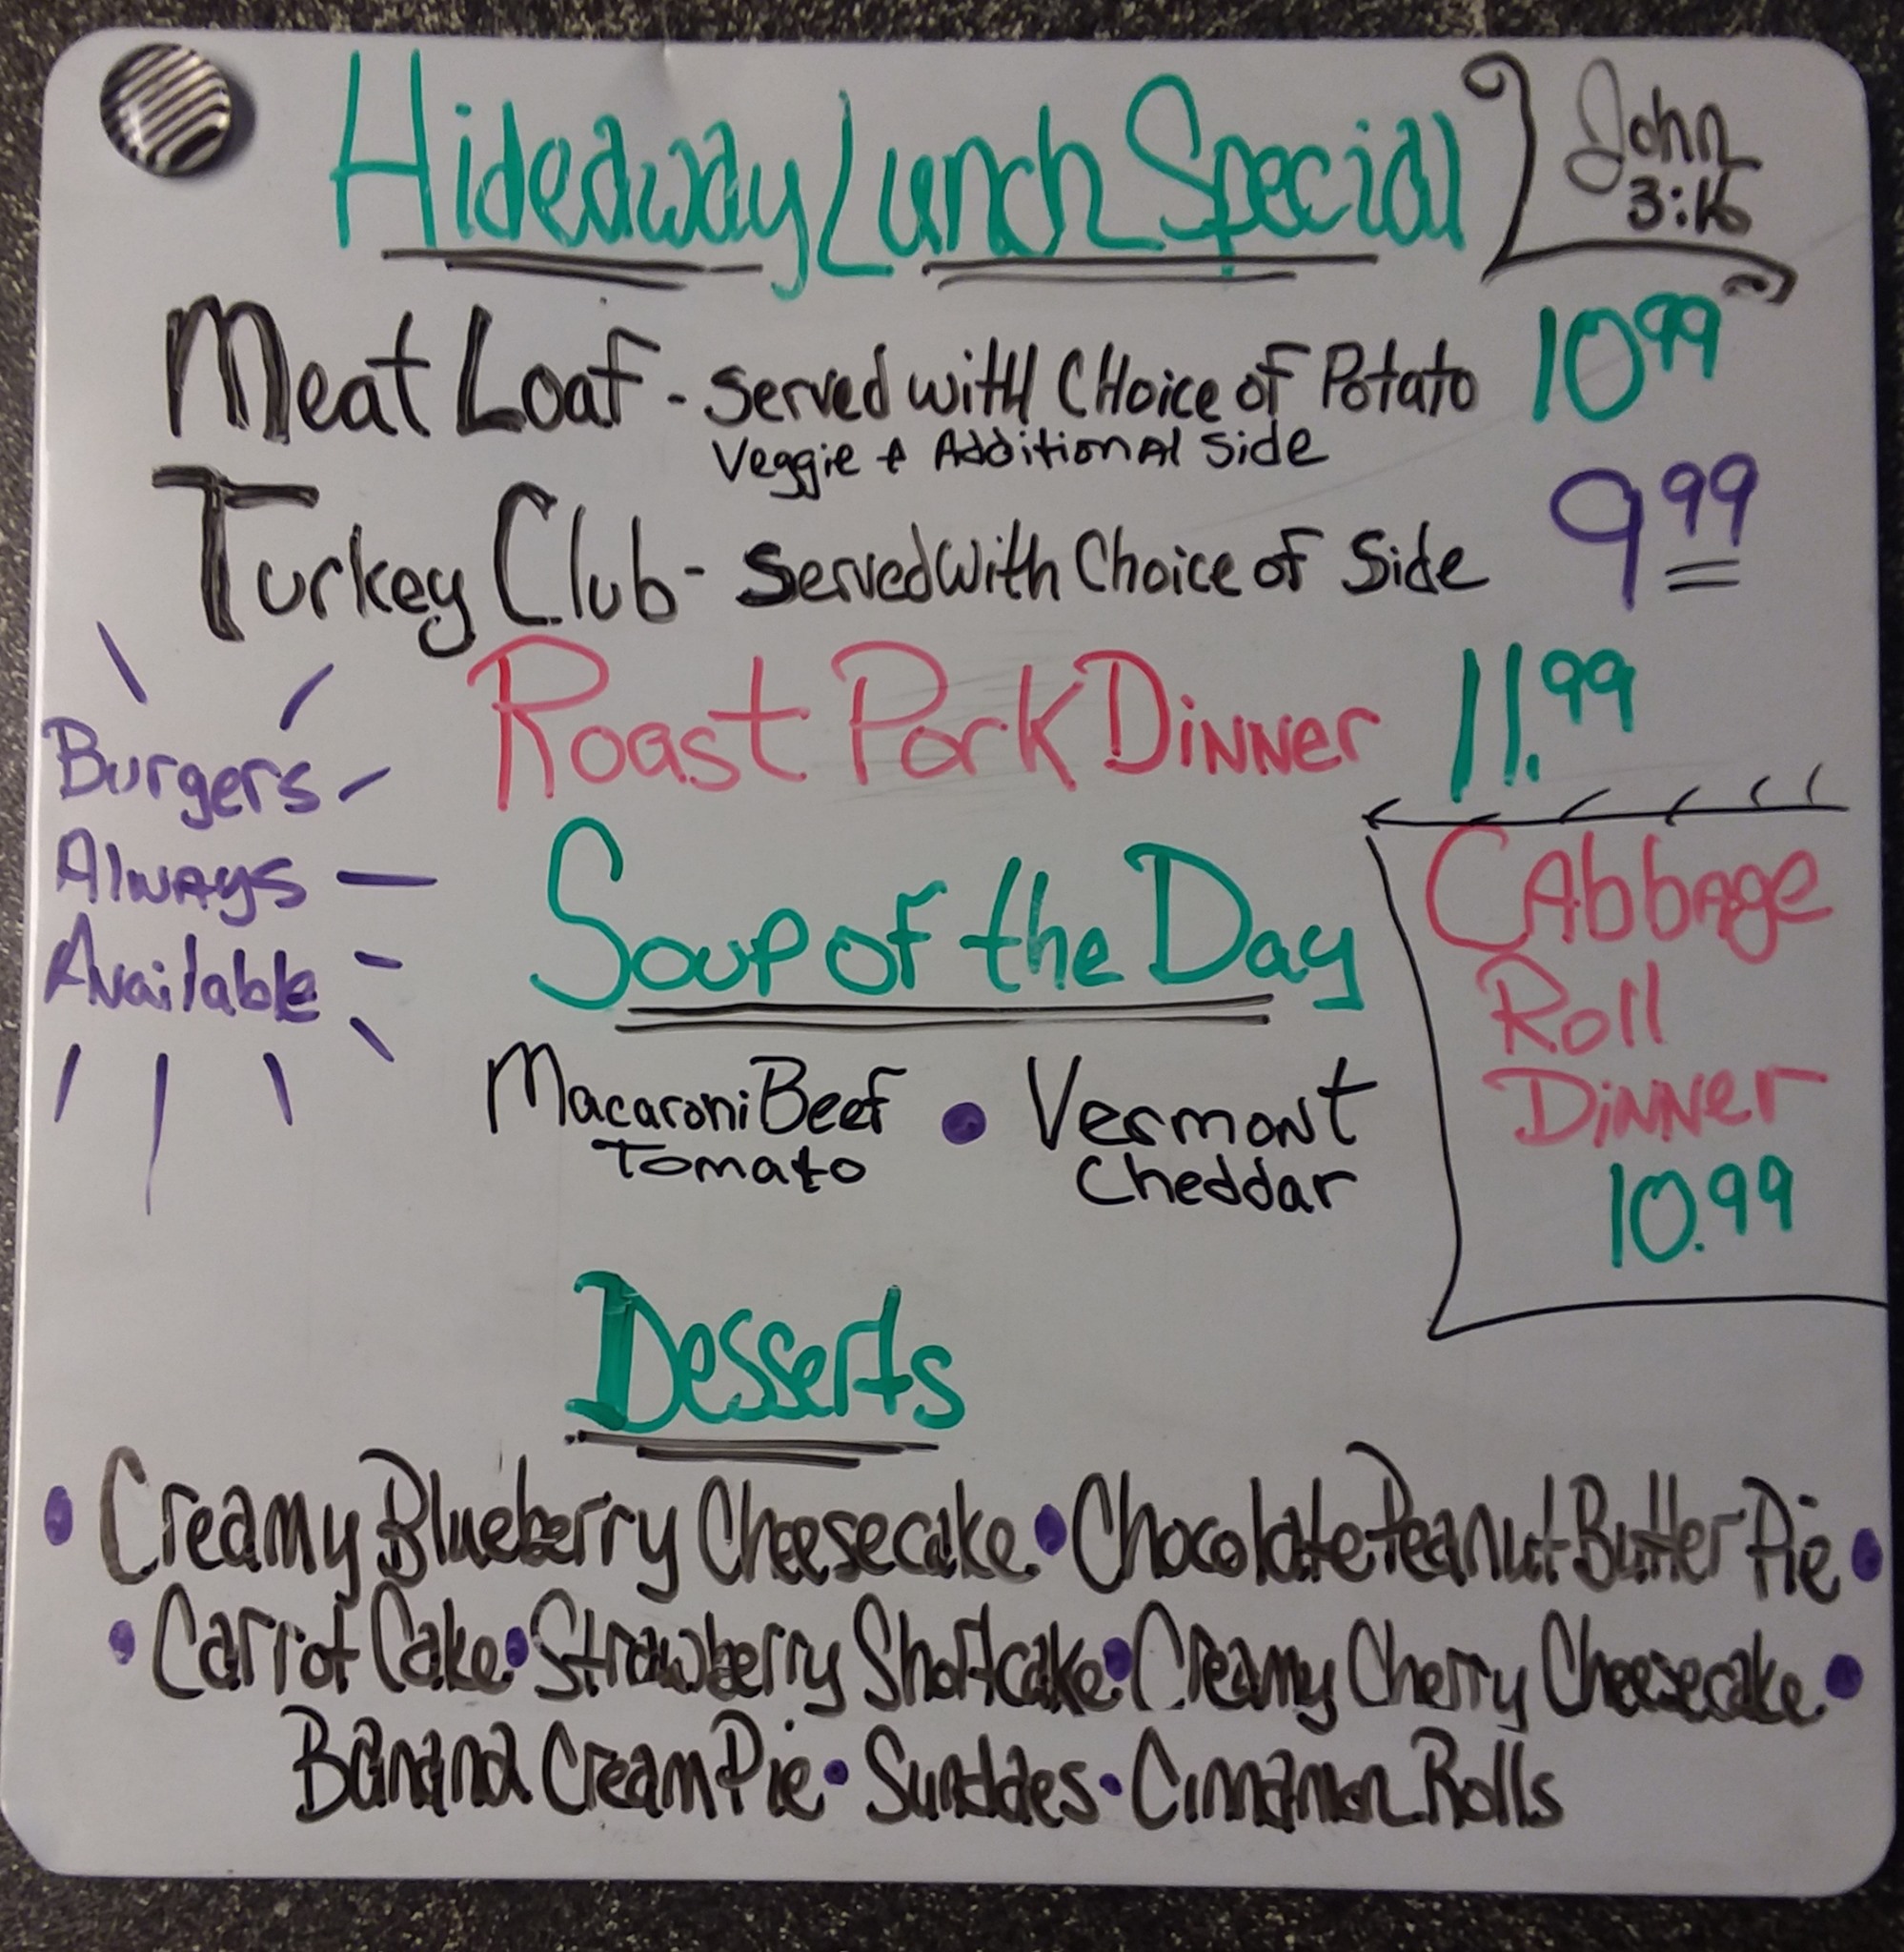 Hideaway Lunch Special
John
3:16
Meat Loaf - Served with CHoice of Potato 10 99
Veggie & Additional Side
Turkey Club - Served With Choice of Side 9 99
Roast Pork Dinner 11.99
Burgers
Always
Available
Soup of the Day
Macaroni Beef
Tomato
• Vermont
Cheddar
Cabbage
Roll
Dinner
10.99
Desserts
• Creamy Blueberry Cheesecake • Chocolate Peanut Butter Pie •
• Carrot Cake • Strawberry Shortcake • Creamy Cherry Cheesecake •
Banana Cream Pie • Sundaes • Cinnamon Rolls